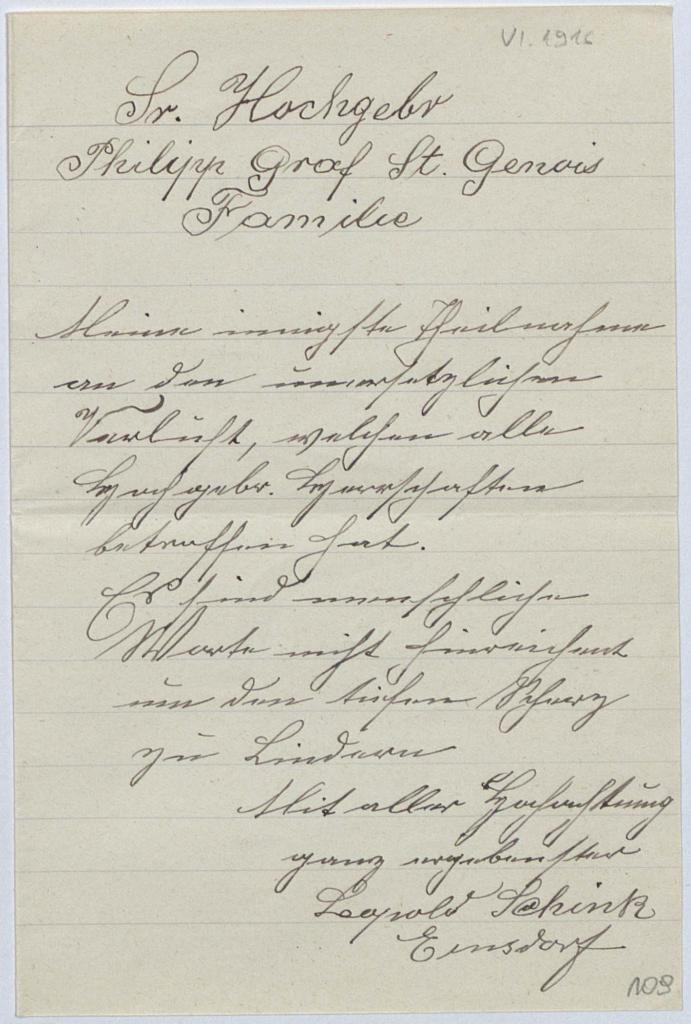 VI. 1916
Sr. Hochgebr
Philipp Graf St. Genois
Familie
Meine innigste Theilnahme
an den unersetzlichen
Verlußt, welchen alle
Hochgebr. Herrschaften
betroffen hat.
Es sind menschliche
Worte nicht hinreichent
um den tiefen Schmerz
zu Lindern
Mit aller Hochachtung
ganz ergebenster
Leopold Schink
Ernsdorf
109